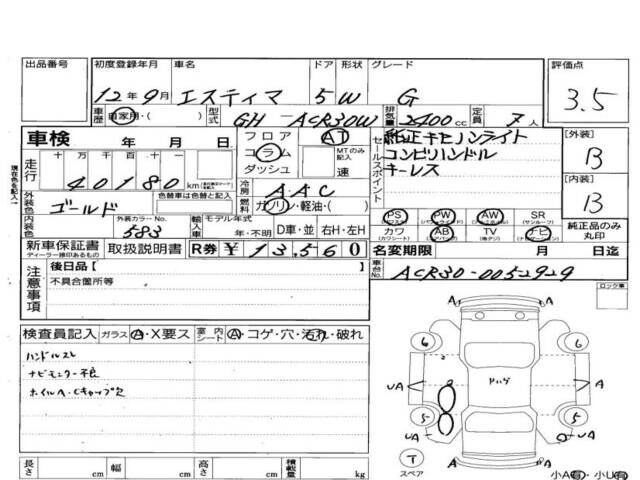 出品番号 初度登録年月 車名 ドア 形状 グレード 評価点
12年9月 エスティマ 5 W G 3.5
車歴 自家用・( ) 型式 GH-ACR30W 排気量 2400cc 定員 7人
車検 年 月 日
フロア AT
コラム MTのみ記入
ダッシュ 速
セールスポイント
純正キセノンライト
コンビハンドル
キーレス
[外装]
B
[内装]
B
現在色を記入
走行 十 万 千 百 十
40180 km
冷房 AAC
外装色 ゴールド 色替車は色替と記入
燃料 ガソリン・軽油・( )
内装色 外装カラーNo. 583
輸入車 モデル年式 年・不明 D車・並 右H・左H
PS PW AW SR
(パワステ) (パワーウィンドウ) (サンルーフ)
カワ AB TV ナビ
(カワシート) (エアバッグ) (地デジ)
純正品のみ丸印
新車保証書 取扱説明書 R券 ¥13,560
ディーラー様印あるもの
名変期限 月 日迄
車台No. ACR30-0052929
注意事項
後日品【
不具合箇所等
ロック車
検査員記入 ガラス A・X要ス 室内シート A・コゲ・穴・汚れ・破れ
ハンドルスレ
ナビモニター不良
ホイルA・Cキャップ欠
A
6 6
UA A A
5 5
UA UA
T
スペア
A A
小A有・小U有
長さ cm 幅 cm 高さ cm 積載量 kg